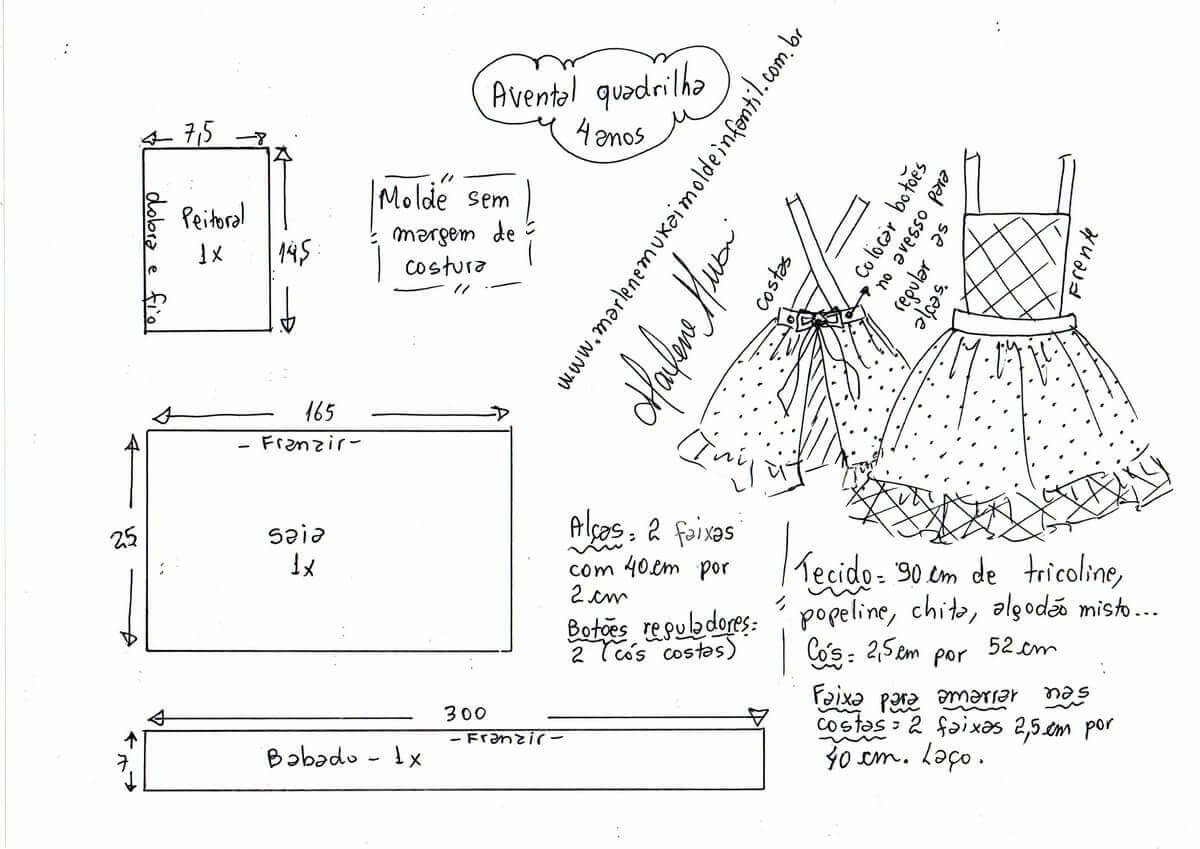 Avental quadrilha
4 anos
www.marlenemukaimoldeinfantil.com.br
7,5
dobra e fio
Peitoral
1x
14,5
Molde sem
margem de
costura
Costas
Colocar botões
no avesso para
regular as
alças.
Frente
165
- Franzir -
25
Saia
1x
Alças = 2 faixas
com 40 cm por
2 cm
Botões reguladores =
2 (cós costas)
Tecido = 90 cm de tricoline,
popeline, chita, algodão misto...
Cós = 2,5 cm por 52 cm
Faixa para amarrar nas
costas = 2 faixas 2,5 cm por
40 cm. Laço.
300
- Franzir -
7
Babado - 1x